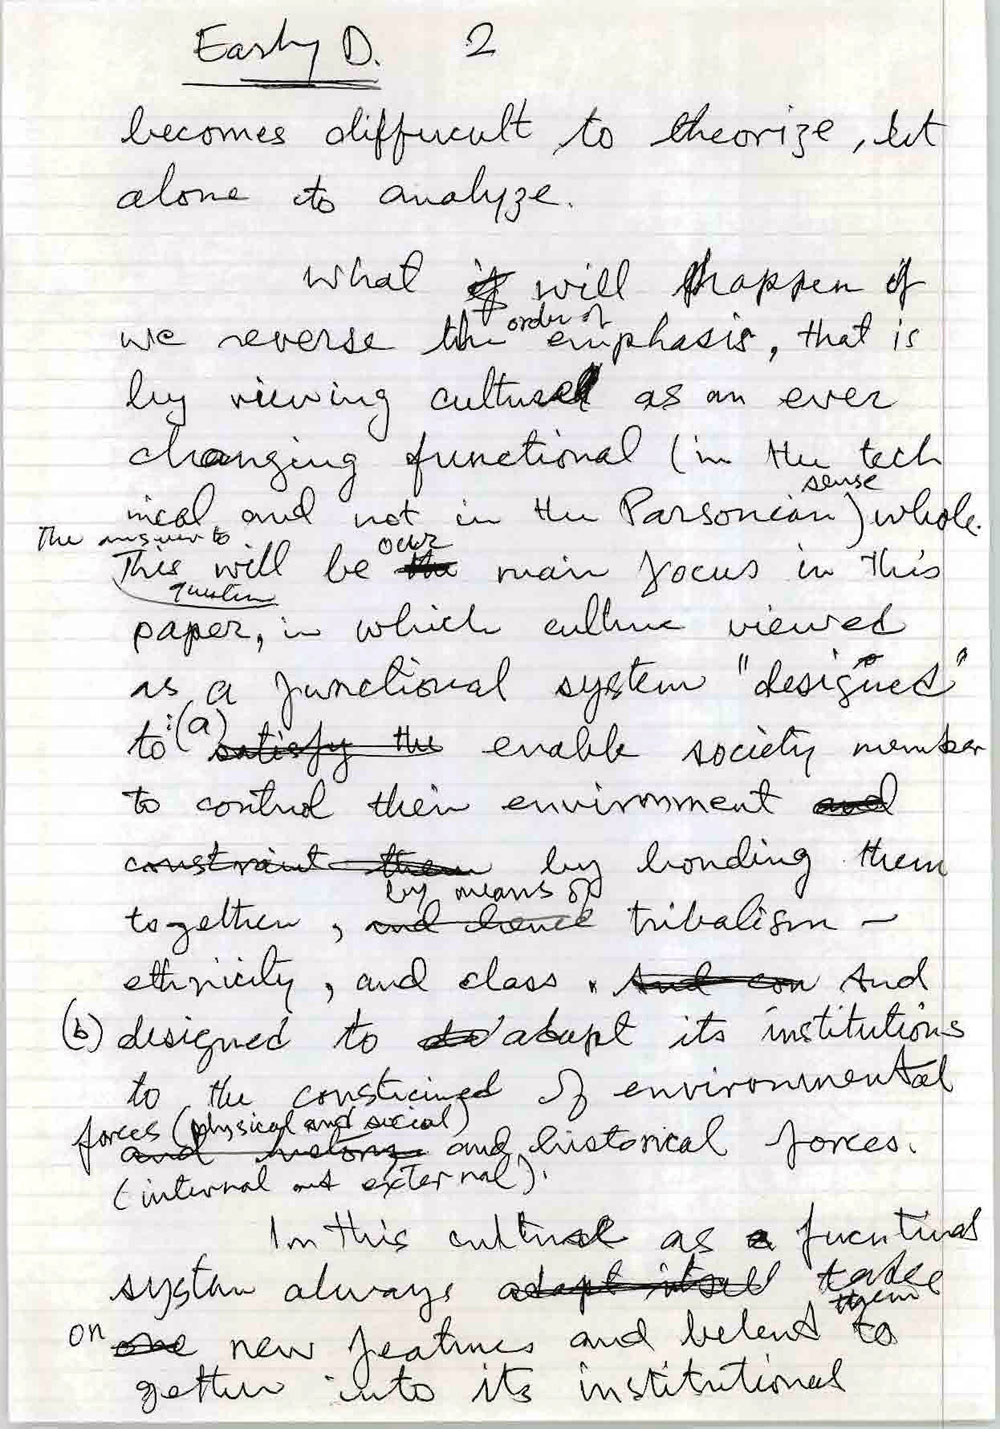 Early D. 2
becomes difficult to theorize, let
alone to analyze.
What if will happen if
order of
we reverse the emphasis, that is
by viewing culture as an ever
changing functional (in the tech
sense
nical and not in the Parsonian) whole.
The answer to our
This will be the main focus in this
question
paper, in which culture viewed
as a functional system "designed"
to: (a) satisfy the enable society member
to control their environment and
constraint them by bonding them
by means of
together, and hence tribalism –
ethnicity, and class. And con And
(b) designed to adapt its institutions
to the of environmental
forces (physical and social)
and and historical forces.
(internal and external).
In this culture as a
system always adapt itself take
them
on one new features and to
gether into its institutional